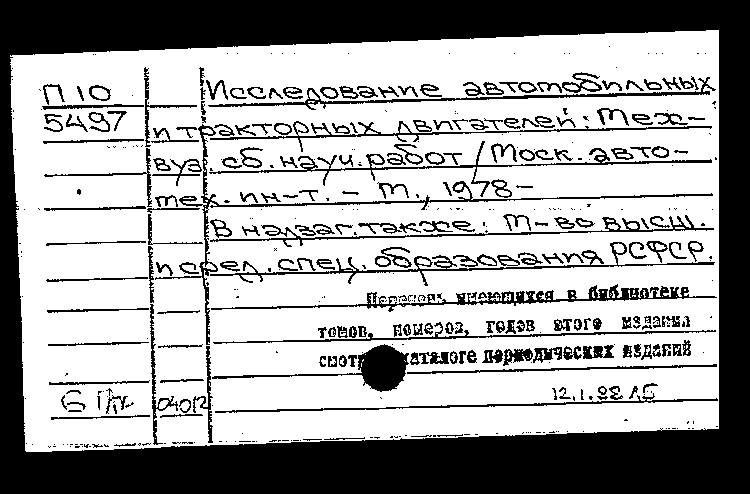 П 10 Исследование автомобильных
5497 и тракторных двигателей: Меж-
вуз. сб. науч. работ / Моск. авто-
мех. ин-т. - М., 1978-
В надзаг. также: М-во высш.
и сред. спец. образования РСФСР.
Перечень имеющихся в библиотеке
томов, номеров, годов этого издания
смотри каталоге периодических изданий
04012 12.1.88